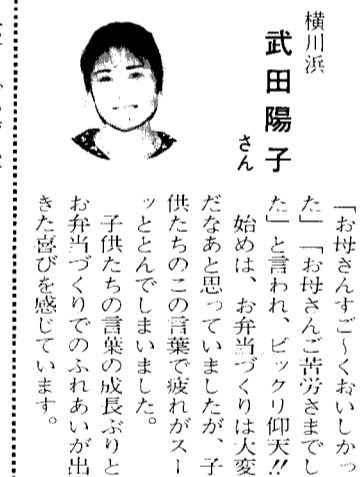 横川浜
武田陽子
さん
「お母さんすご〜くおいしかっ
た」「お母さんご苦労さまでし
た」と言われ、ビックリ仰天!!
始めは、お弁当づくりは大変
だなあと思っていましたが、子
供たちのこの言葉で疲れがスー
ッととんでしまいました。
子供たちの言葉の成長ぶりと
お弁当づくりでのふれあいが出
きた喜びを感じています。